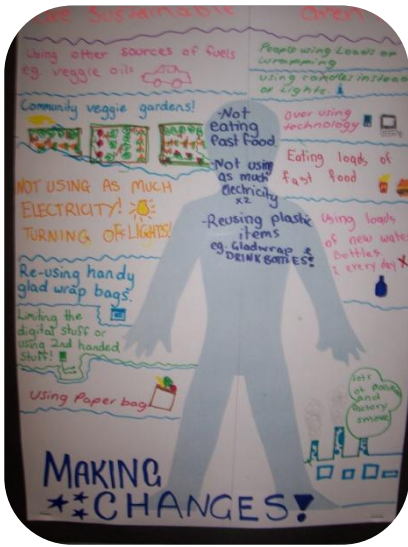 Sustainable
Using other sources of fuels
eg. veggie oils
Community veggie gardens!
NOT USING AS MUCH
ELECTRICITY!
TURNING OFF LIGHTS!
Re-using handy
glad wrap bags.
Limiting the
digital stuff or
using 2nd handed
stuff!
Using Paper bag
-Not
eating
Fast food
-Not using
as much
Electricity
x2
-Reusing plastic
items
eg. Gladwrap &
DRINK BOTTLES!
People using Loads of
wrapping
using candles instead
of Lights.
Over using
technology
Eating loads of
fast food
Using loads
of new water
bottles.
2 every day
lots
of
and
factory
smoke
MAKING
CHANGES!